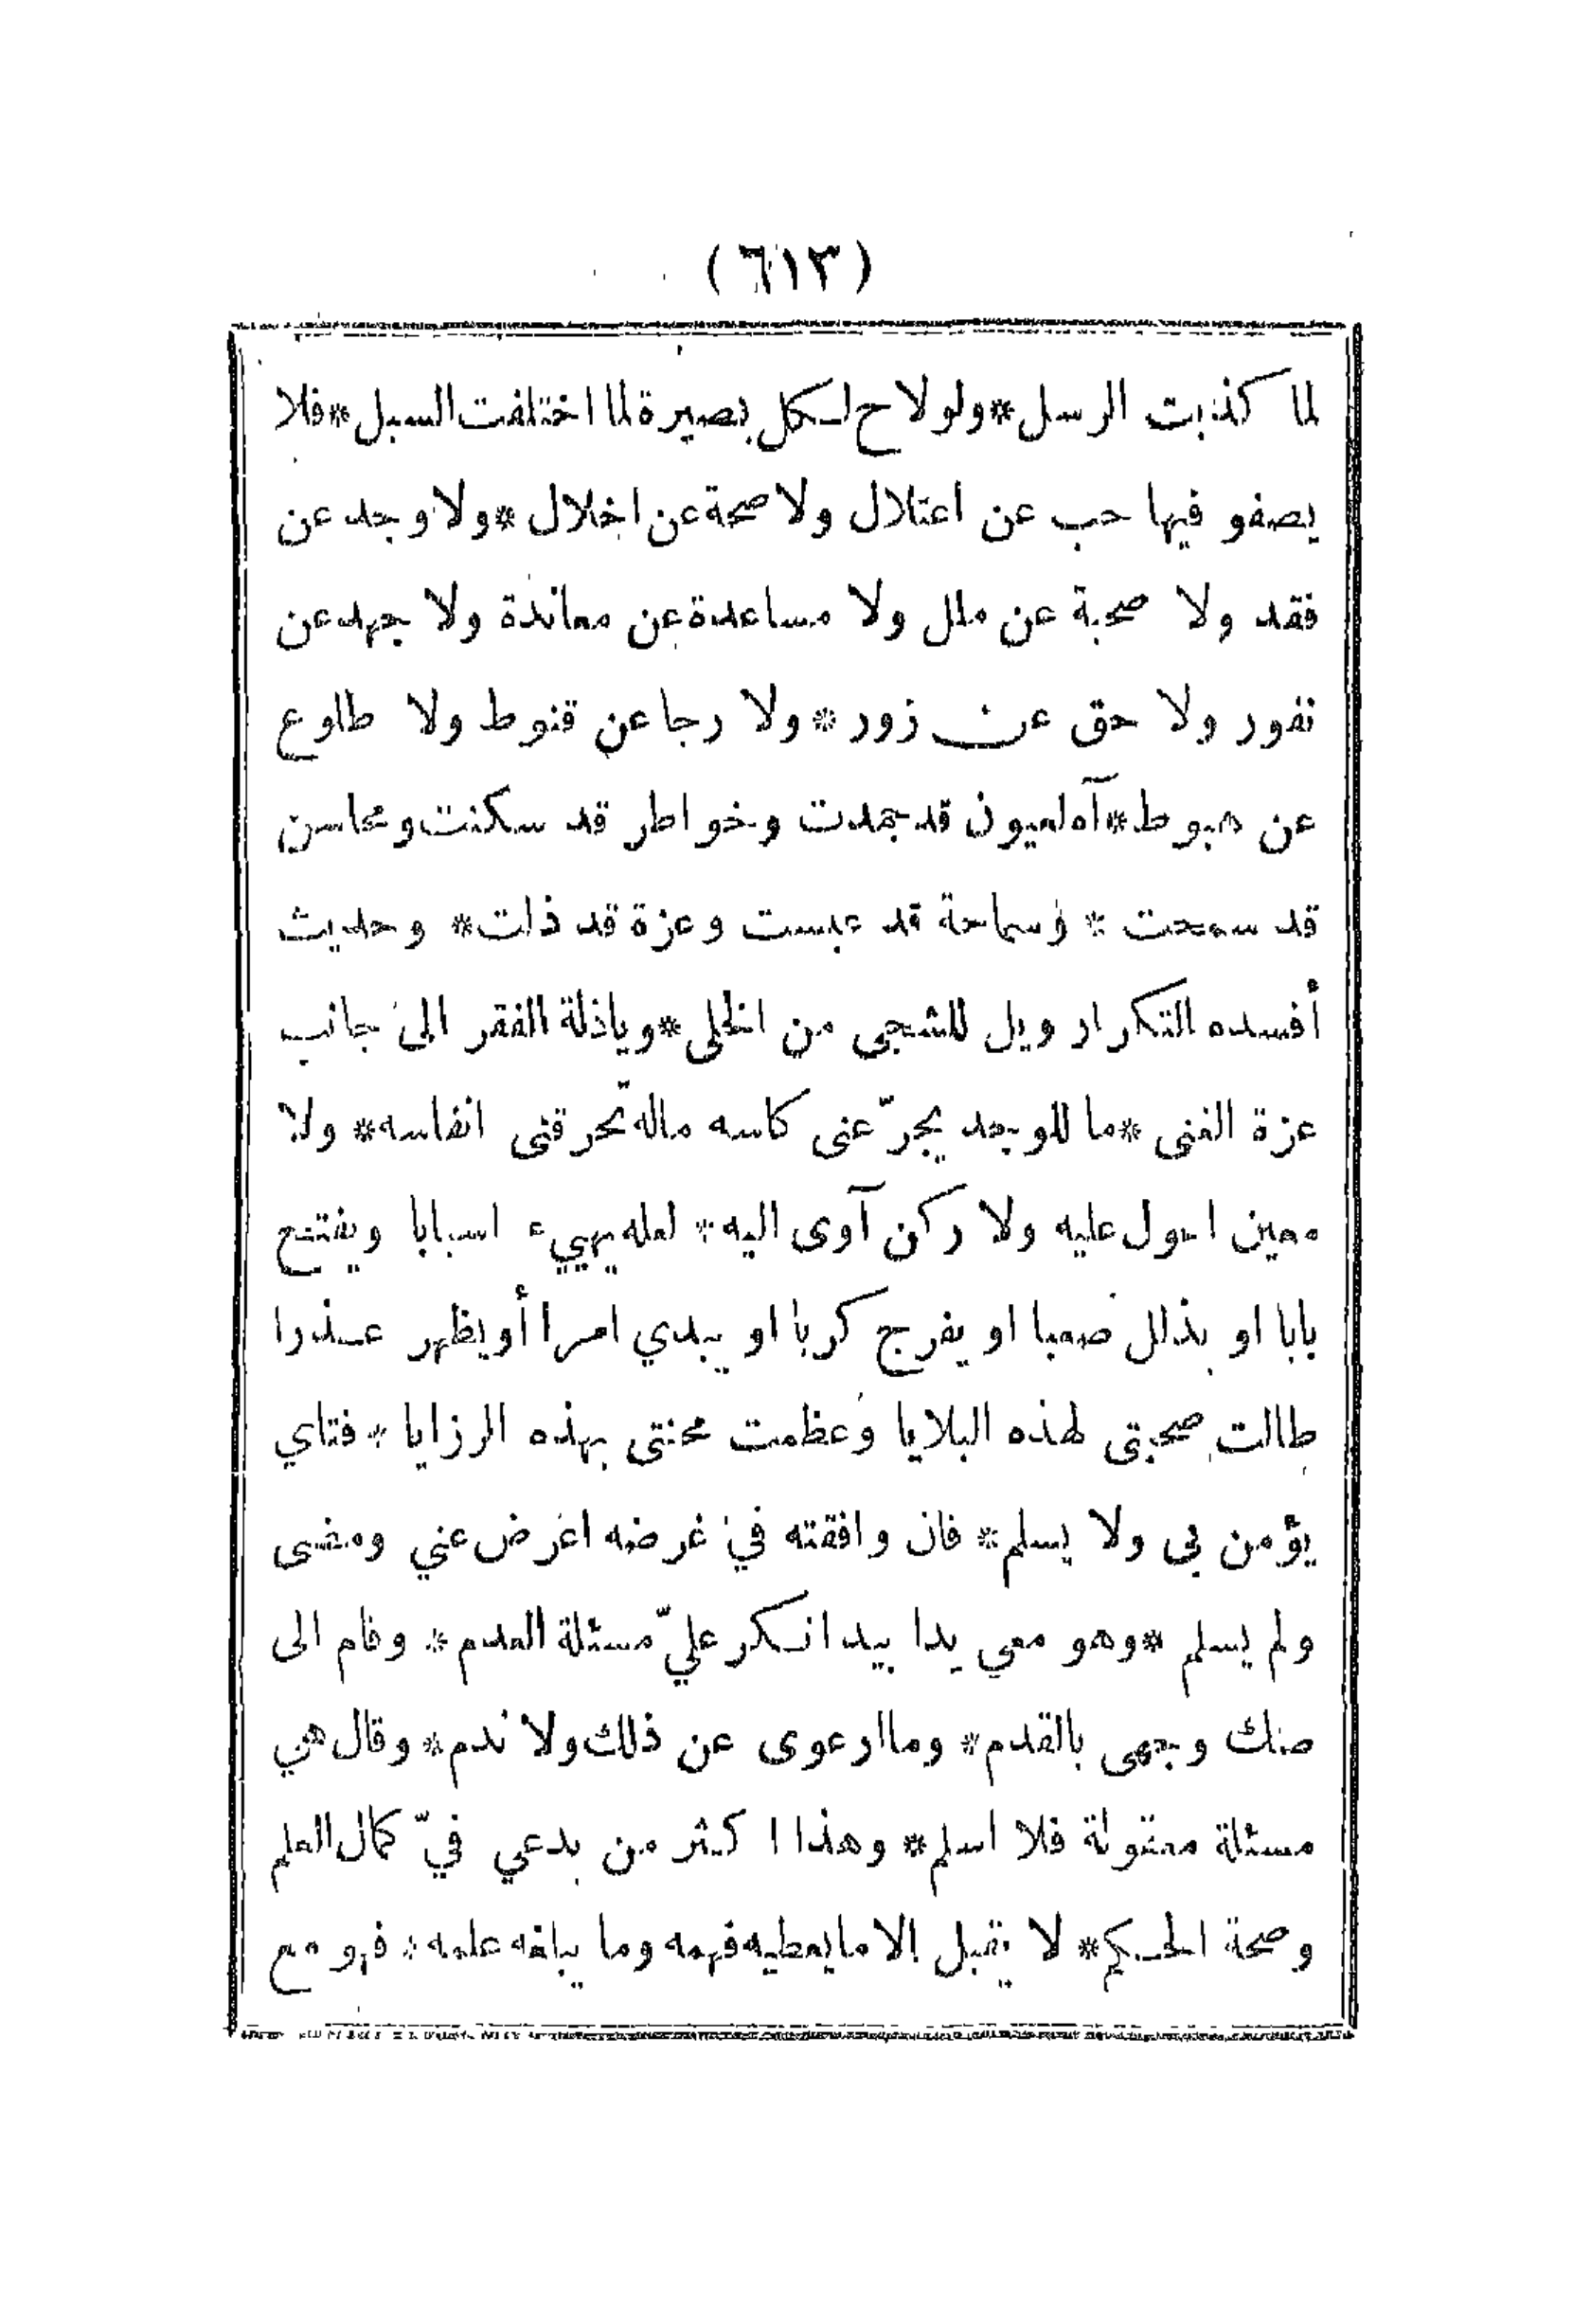 (٦١٣)
لما كذبت الرسل * ولولاح لكل بصيرة لما اختلفت السبل * فلا
يصفو فيها حب عن اعتلال ولا صحة عن اخلال * ولا وجد عن
فقد ولا صحبة عن ملل ولا مساعدة عن معاندة ولا جهد عن
نفور ولا حق عن زور * ولا رجا عن قنوط ولا طلوع
عن هبوط * آه لعيون قد جمدت وخواطر قد سكنت ومحاسن
قد سمجت * وسماحة قد عبست وعزة قد ذلت * وحديث
أفسده التكرار ويل للشجى من الخلى * وياذلة الفقر الى جانب
عزة الغنى * ما للوجد يجرّعنى كاسه ماله تحرقنى انفاسه * ولا
معين اعول عليه ولا ركن آوى اليه * لعله يهييء اسبابا ويفتح
بابا او يذلل صعبا او يفرج كربا او يبدي امرا أو يظهر عذرا
طالت صحبتى لهذه البلايا وعظمت محنتى بهذه الرزايا * فتاي
يؤمن بى ولا يسلم * فان وافقته في غرضه اعرض عني ومضى
ولم يسلم * وهو معي يدا بيد انكر عليّ مسئلة العدم * وقام الى
صك وجهى بالقدم * وما ارعوى عن ذلك ولا ندم * وقال هي
مسئلة معقولة فلا اسلم * وهذا اكثر من يدعي فيّ كمال العلم
وصحة الحكم * لا يقبل الا ما يعطيه فهمه وما يبلغه علمه * فهو مع